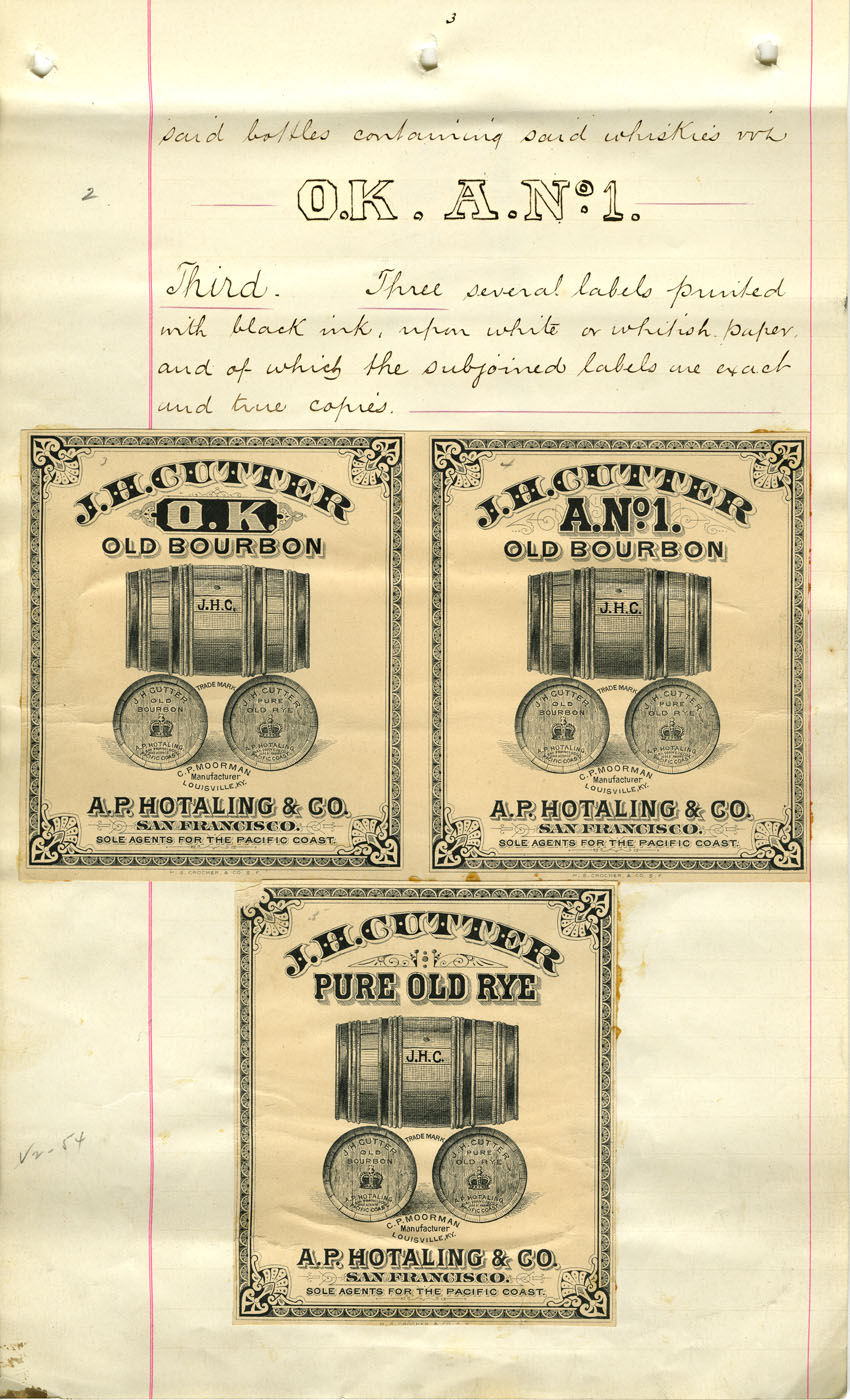 3
said bottles containing said whiskies viz
2
O.K. A.No.1.
Third. Three several labels printed
with black ink, upon white or whitish paper,
and of which the subjoined labels are exact
and true copies.
J.H. CUTTER
O.K.
OLD BOURBON
J.H.C.
TRADE MARK
J.H. CUTTER
OLD
BOURBON
A.P. HOTALING
PACIFIC COAST
J.H. CUTTER
PURE
OLD RYE
A.P. HOTALING
PACIFIC COAST
C.P. MOORMAN
Manufacturer
LOUISVILLE, KY.
A.P. HOTALING & CO.
SAN FRANCISCO.
SOLE AGENTS FOR THE PACIFIC COAST.
H. S. CROCKER, & CO. S. F.
J.H. CUTTER
A.No.1.
OLD BOURBON
J.H.C.
TRADE MARK
J.H. CUTTER
OLD
BOURBON
A.P. HOTALING
PACIFIC COAST
J.H. CUTTER
PURE
OLD RYE
A.P. HOTALING
PACIFIC COAST
C.P. MOORMAN
Manufacturer
LOUISVILLE, KY.
A.P. HOTALING & CO.
SAN FRANCISCO.
SOLE AGENTS FOR THE PACIFIC COAST.
H. S. CROCKER, & CO. S. F.
J.H. CUTTER
PURE OLD RYE
J.H.C.
TRADE MARK
J.H. CUTTER
OLD
BOURBON
A.P. HOTALING
PACIFIC COAST
J.H. CUTTER
PURE
OLD RYE
A.P. HOTALING
PACIFIC COAST
C.P. MOORMAN
Manufacturer
LOUISVILLE, KY.
A.P. HOTALING & CO.
SAN FRANCISCO.
SOLE AGENTS FOR THE PACIFIC COAST.